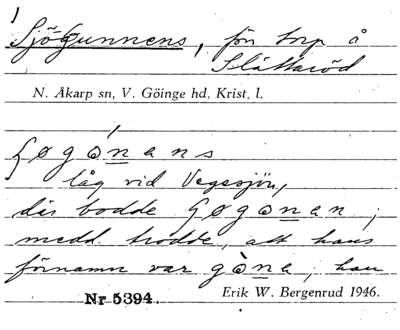 SjöGunnens, förr torp å
Slättaröd
N. Åkarp sn, V. Göinge hd, Krist. l.
ʃøgònans
låg vid Vegasjön,
där bodde ʃøgònan;
medd. trodde, att hans
förnamn var gòna, han
Nr 5394. Erik W. Bergenrud 1946.